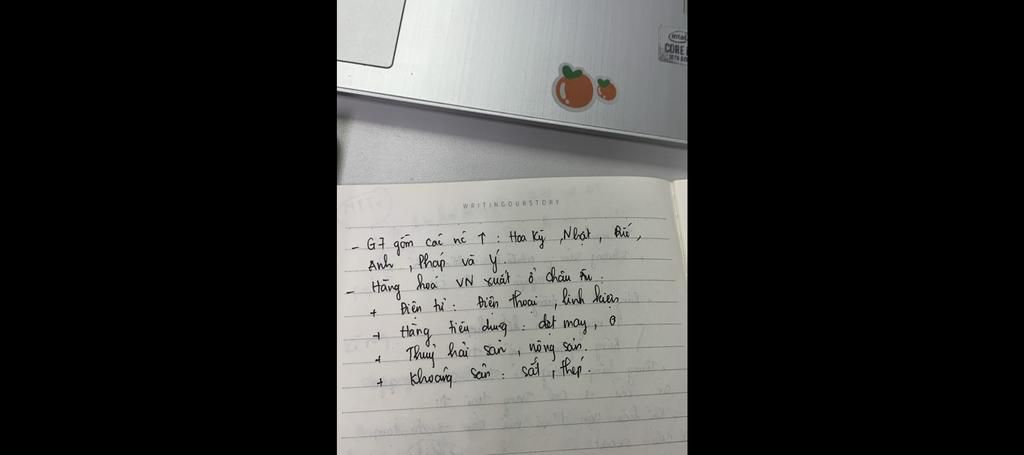 intel
CORE
WRITINGOURSTORY
- G7 gồm các nc ↑ : Hoa Kỳ , Nhật , Đức ,
Anh , Pháp và Ý.
- Hàng hoá VN xuất ở châu Âu :
+ Điện tử : Điện thoại , linh kiện
+ Hàng tiêu dùng : dệt may ,
+ Thuỷ hải sản , nông sản.
+ Khoáng sản : sắt , thép.